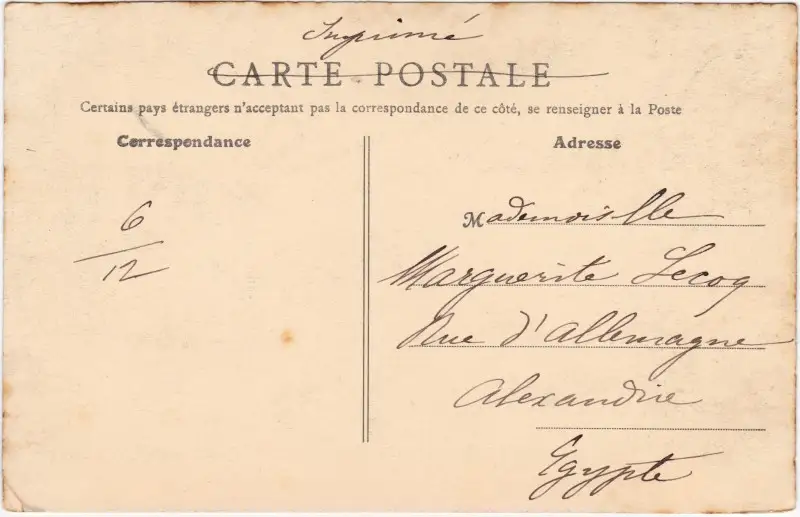 Imprimé
CARTE POSTALE
Certains pays étrangers n'acceptant pas la correspondance de ce côté, se renseigner à la Poste
Correspondance
6
12
Adresse
Mademoiselle
Marguerite Lecoq
Rue d'Allemagne
Alexandrie
Egypte